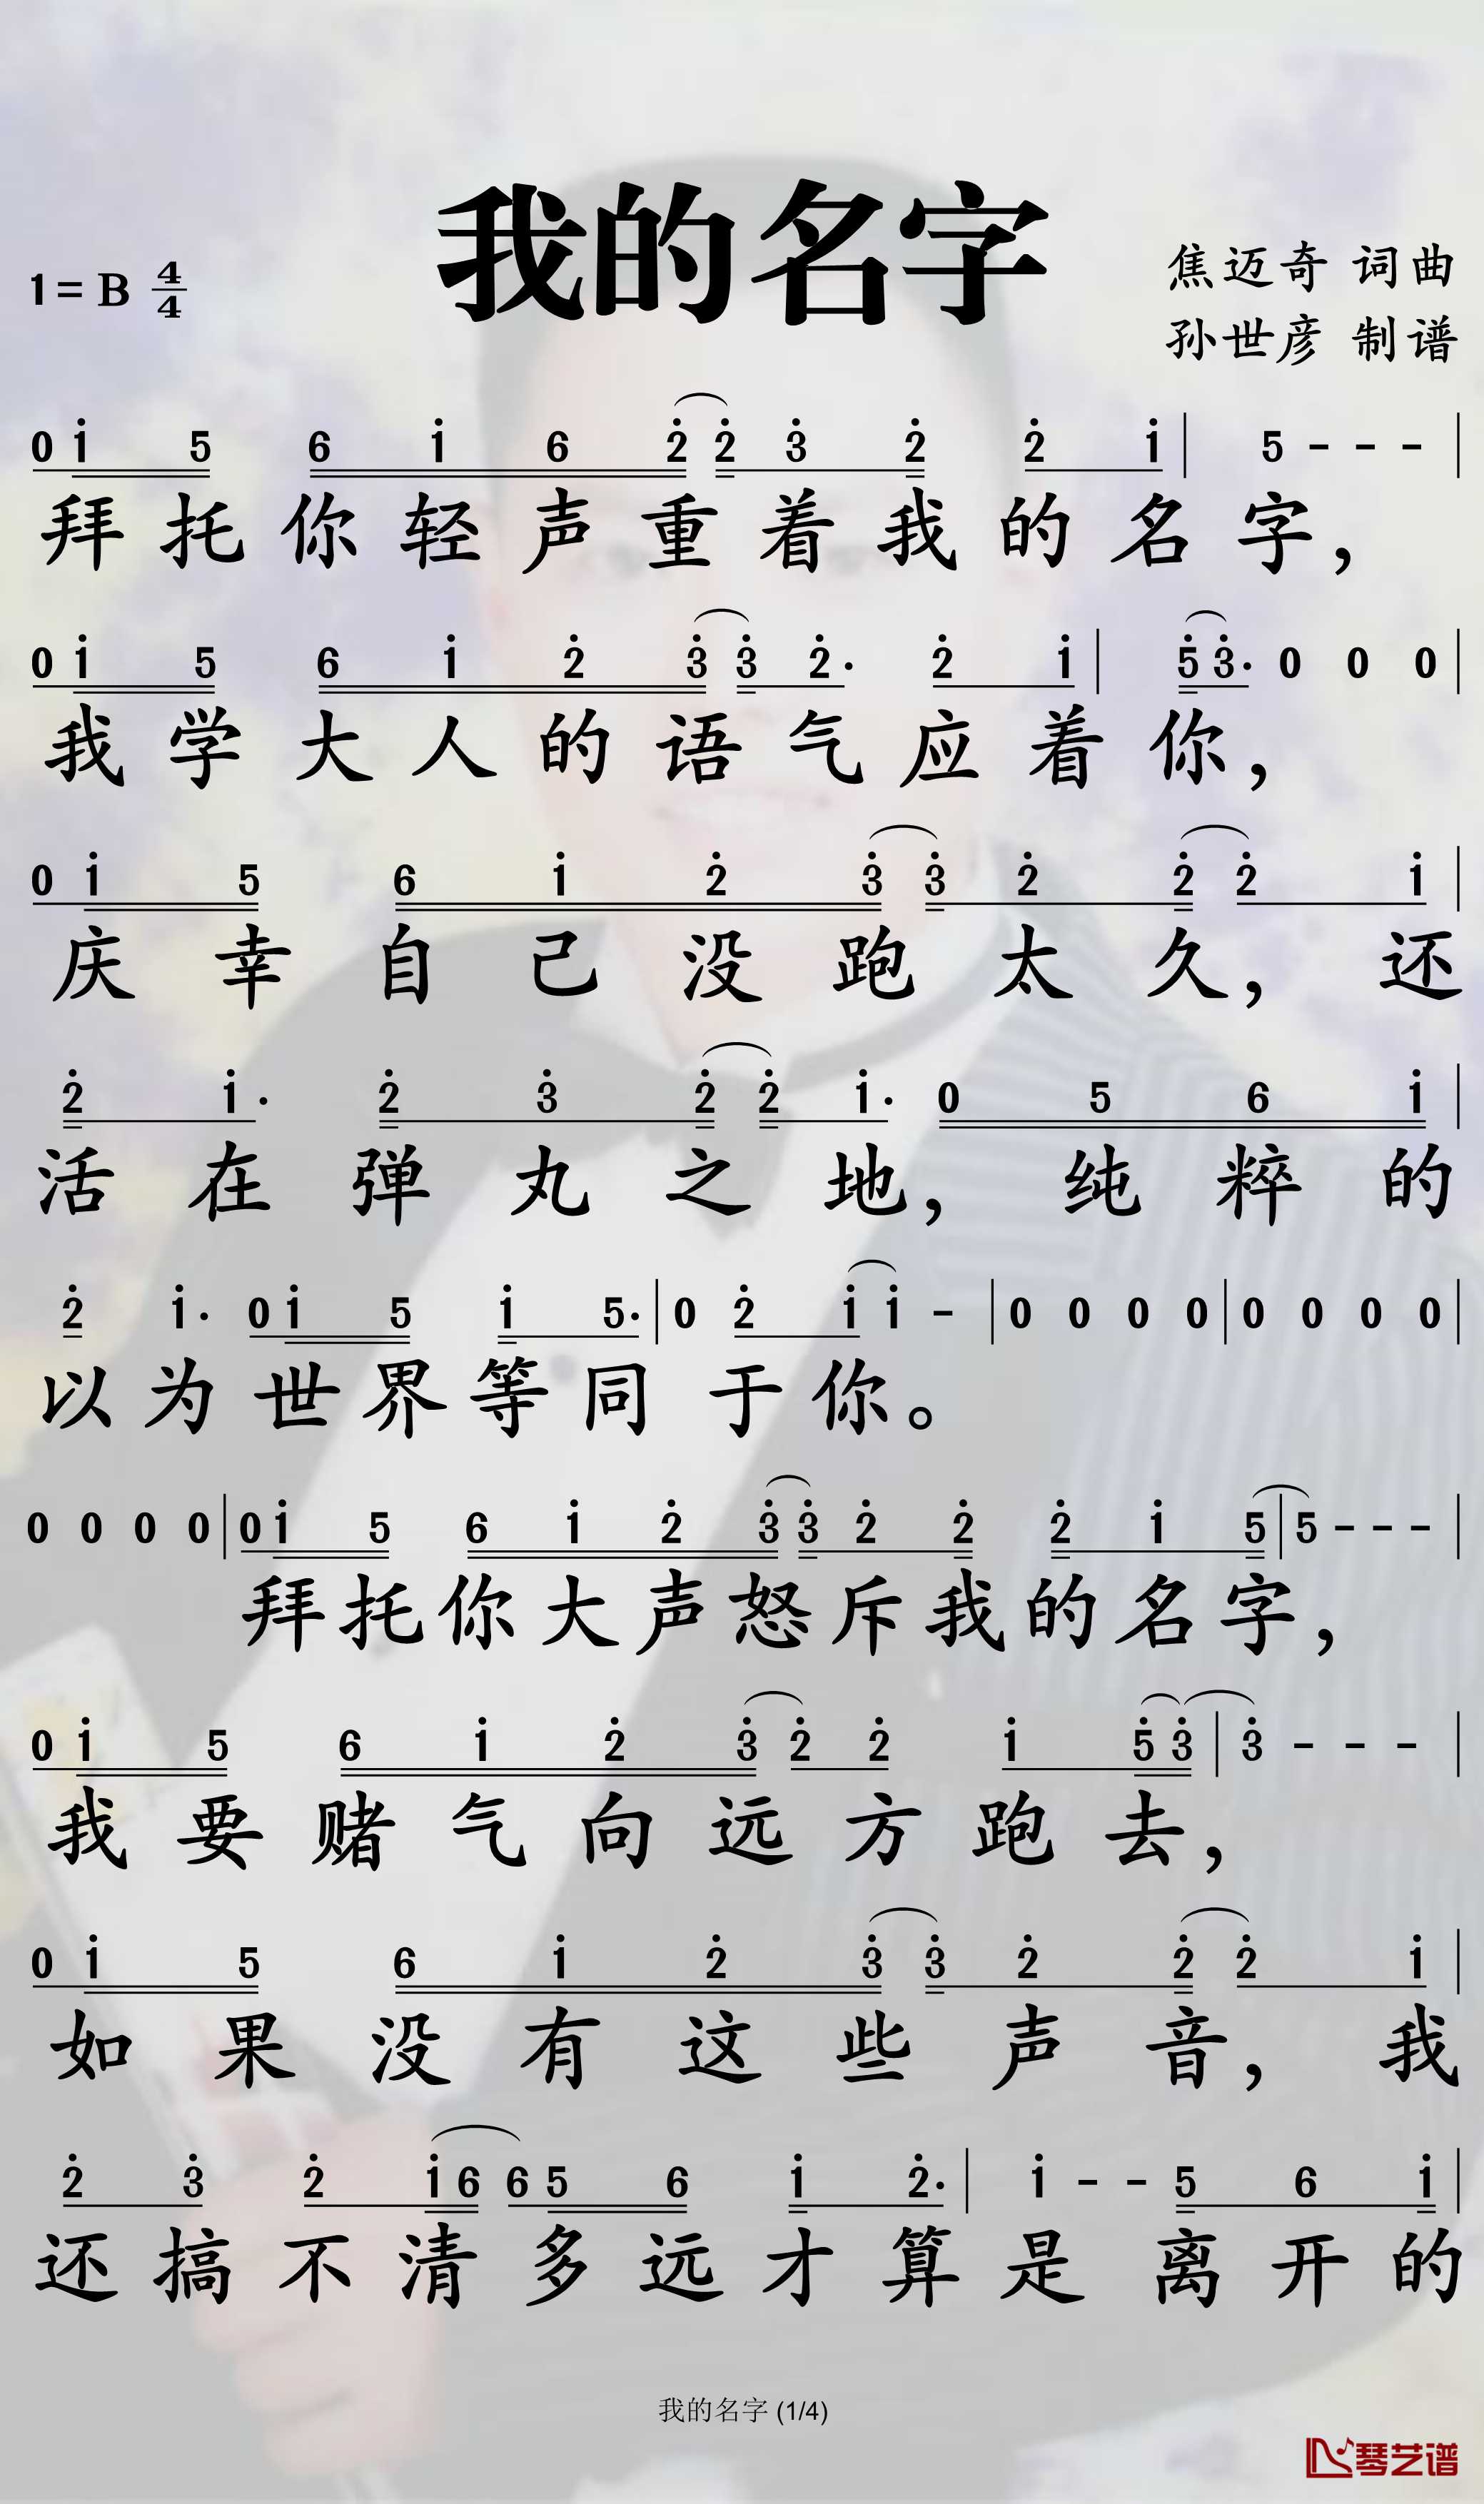 我的名字
1=B 4/4
焦迈奇 词曲
孙世彦 制谱
0 1̇ 5 6 1̇ 6 2̇ 2̇ 3̇ 2̇ 2̇ 1̇ | 5 - - - |
拜托你轻声重着我的名字，
0 1̇ 5 6 1̇ 2̇ 3̇ 3̇ 2̇. 2̇ 1̇ | 5̇ 3̇. 0 0 0 |
我学大人的语气应着你，
0 1̇ 5 6 1̇ 2̇ 3̇ 3̇ 2̇ 2̇ 2̇ 1̇ |
庆幸自己没跑太久，还
2̇ 1̇. 2̇ 3̇ 2̇ 2̇ 1̇. 0 5 6 1̇ |
活在弹丸之地，纯粹的
2̇ 1̇. 0 1̇ 5 1̇ 5. | 0 2̇ 1̇ 1̇ - | 0 0 0 0 | 0 0 0 0 |
以为世界等同于你。
0 0 0 0 | 0 1̇ 5 6 1̇ 2̇ 3̇ 3̇ 2̇ 2̇ 2̇ 1̇ 5̇ | 5 - - - |
拜托你大声怒斥我的名字，
0 1̇ 5 6 1̇ 2̇ 3̇ 2̇ 2̇ 1̇ 5̇ 3̇ | 3̇ - - - |
我要赌气向远方跑去，
0 1̇ 5 6 1̇ 2̇ 3̇ 3̇ 2̇ 2̇ 2̇ 1̇ |
如果没有这些声音，我
2̇ 3̇ 2̇ 1̇ 6 6 5 6 1̇ 2̇. | 1̇ - - 5 6 1̇ |
还搞不清多远才算是离开的
我的名字 (1/4)
琴艺谱